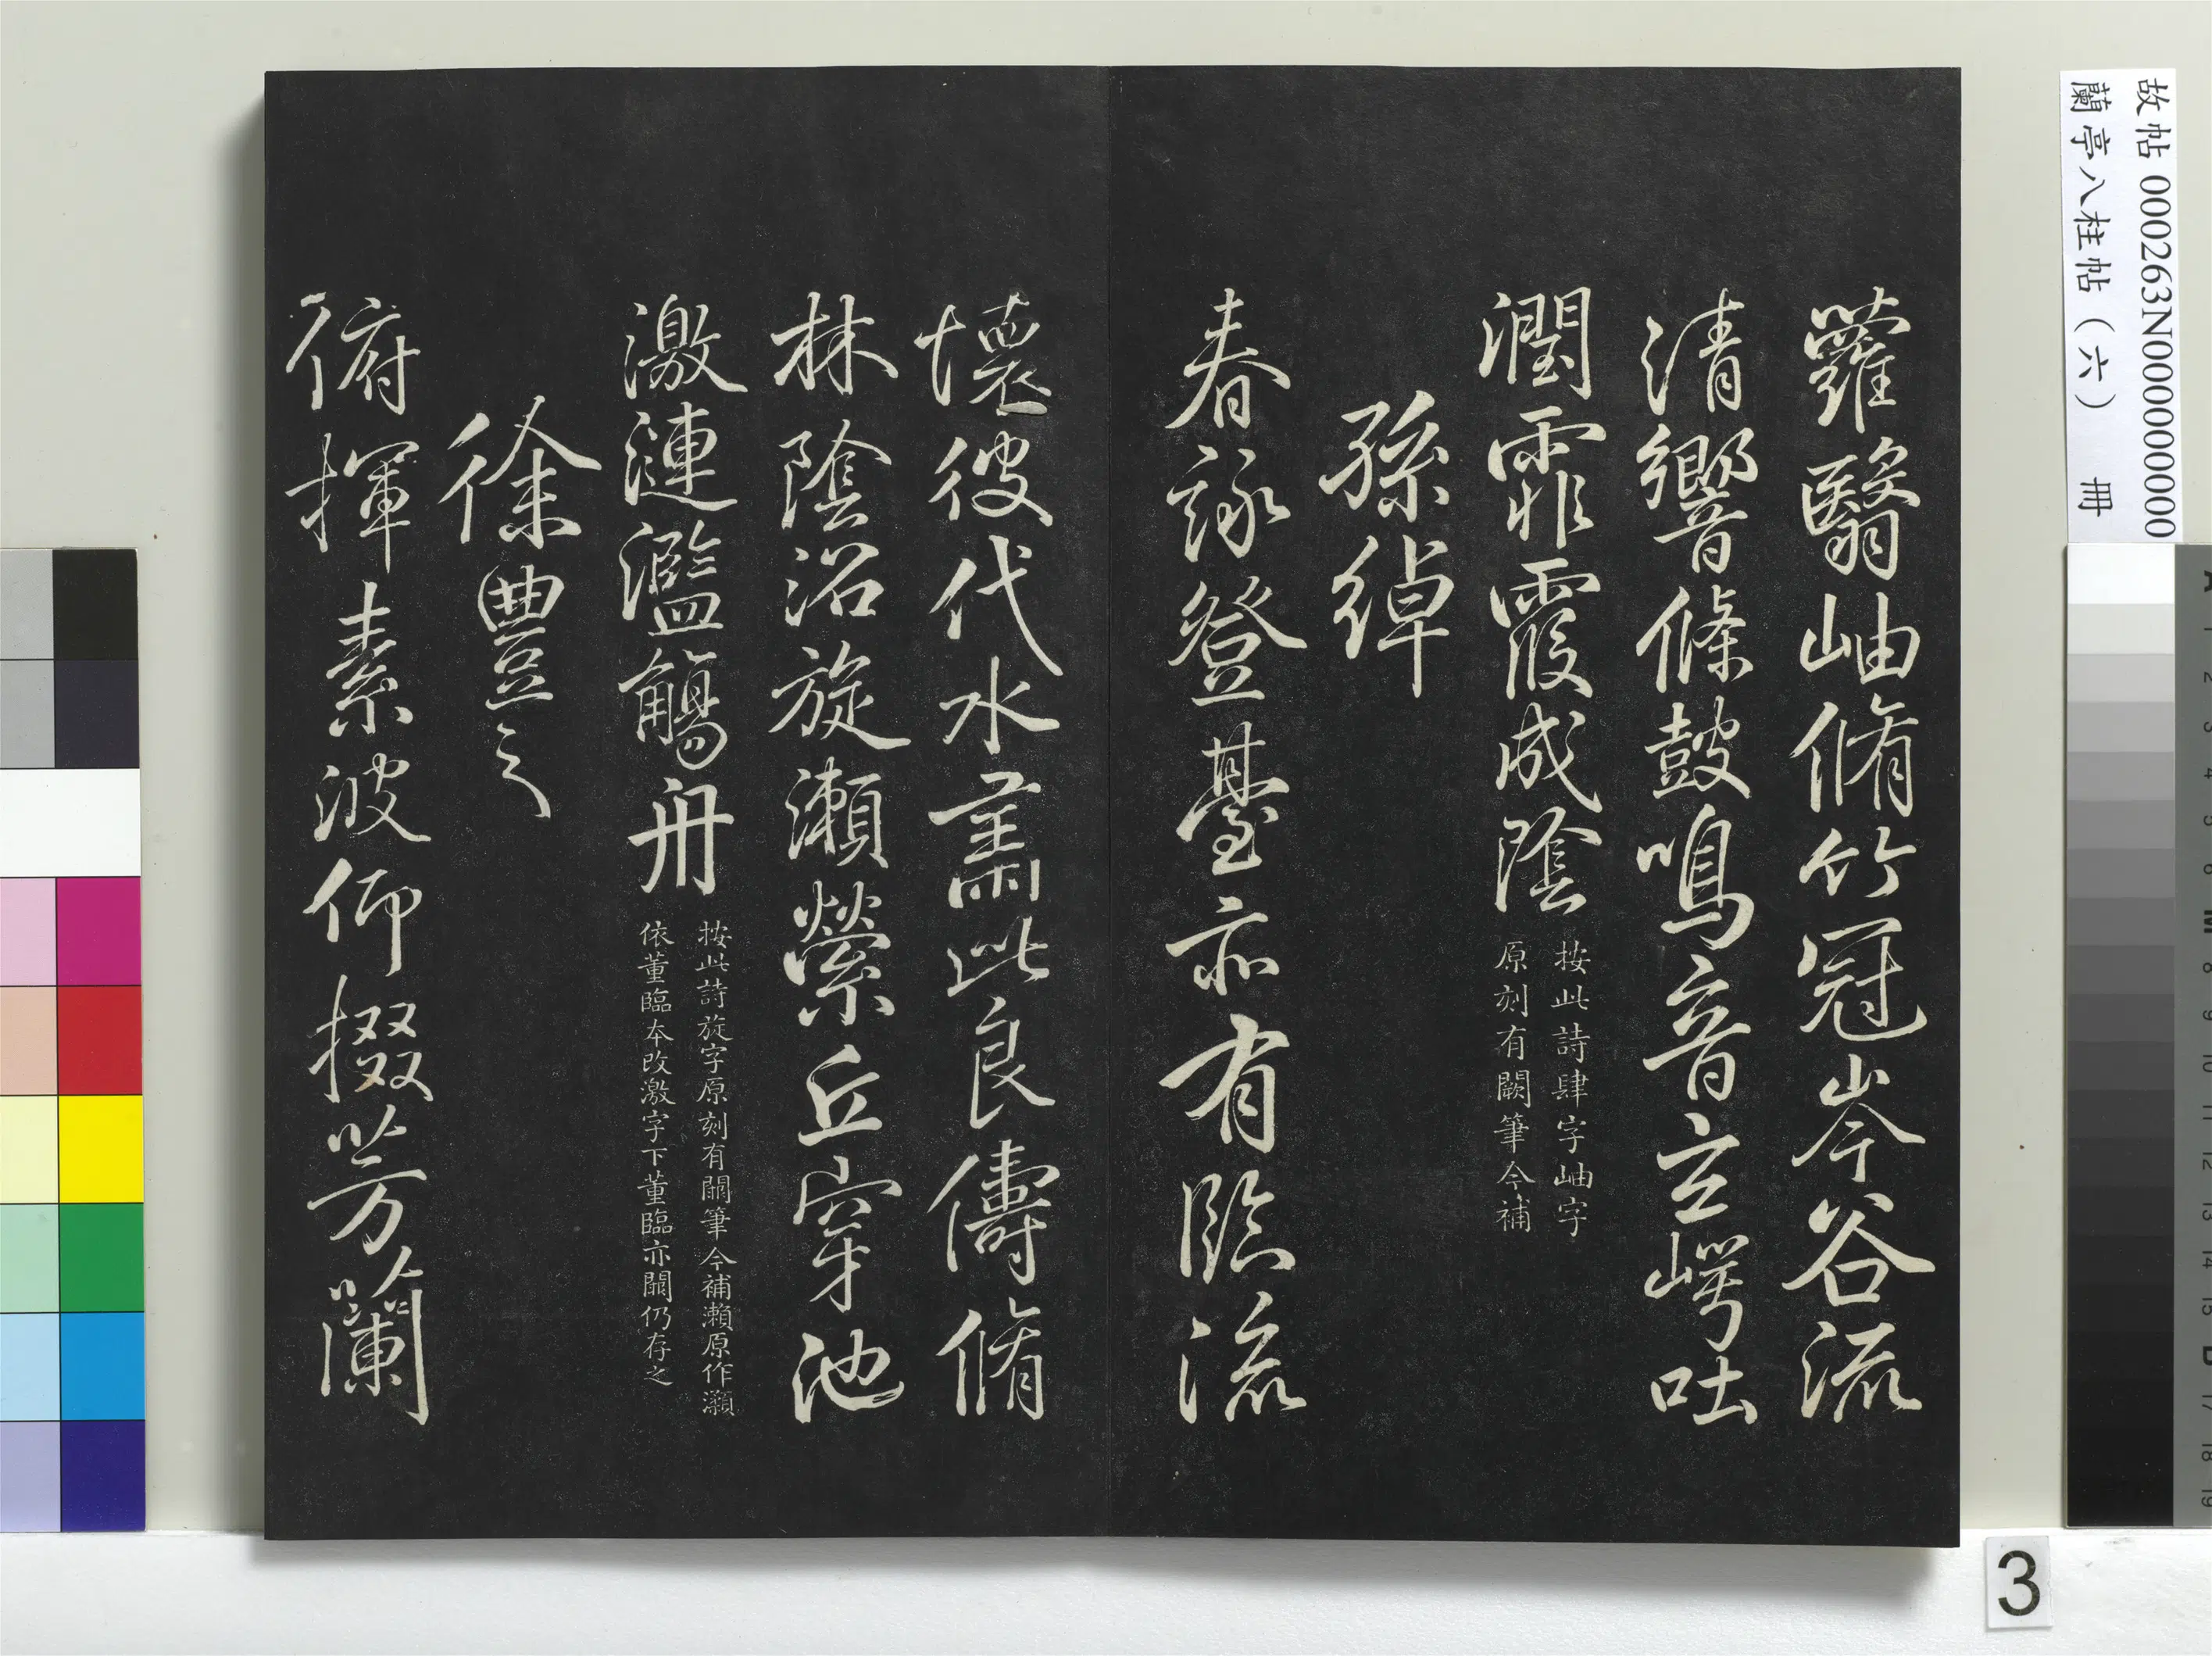 蘿翳岫脩竹冠岑谷流
清響條鼓鳴音玄崿吐
潤霏霧成陰
按此詩肆字岫字
原刻有闕筆今補
孫綽
春詠登臺亦有臨流
懷彼伐木肅此良儔脩
林陰沼旋瀨縈丘穿池
激漣濫觴舟
按此詩旋字原刻有闕筆今補瀨原作灝
依董臨本改激字下董臨亦闕仍存之
徐豐之
俯揮素波仰掇芳蘭
故帖 000263N000000000
蘭亭八柱帖(六) 冊
3